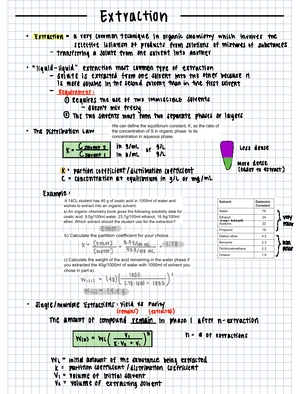 Extraction
• Extraction = a very common technique in organic chemistry which involves the
selective isolation of products from solutions of mixtures of substances
- transferring a solute from one solvent into another
• "liquid-liquid" extraction most common type of extraction
- solute is extracted from one solvent into the other because it
is more soluble in the second solvent than in the first solvent
- Requirements:
① Requires the use of two immiscible solvents
- doesn't mix freely
② The two solvents must form two separate phases or layers
• The Distribution Law
We can define the equilibrium constant, K, as the ratio of
the concentration of S in organic phase to its
concentration in aqueous phase.
K = C solvent 2 / C solvent 1
in g/mL or g/L
in g/mL g/L
less dense
more dense
(easier to extract)
K = partition coefficient / distribution coefficient
C = concentration at equilibrium in g/L or mg/mL
Example:
A 14CL student has 40 g of oxalic acid in 1000ml of water and
wishes to extract into an organic solvent.
a) An organic chemistry book gives the following solubility data for
oxalic acid: 9.5g/100ml water, 23.7g/100ml ethanol, 16.9g/100ml
ether. Which solvent should the student use for the extraction?
b) Calculate the partition coefficient for your choice.
c) Calculate the weight of the acid remaining in the water phase if
you extracted the 40g/1000ml of water with 1000ml of solvent you
chose in part a).
Solvent Dielectric Constant
Water
Ethanol
Acetone
Propanol
Diethyl ether
Benzene
Dichloromethane
Octane
very polar
non polar
• Single/Multiple Extractions: Yield or Purity
(remains) (extracted)
The amount of compound remain in phase 1 after n-extraction
n = # of extractions
W₁ = initial amount of the substance being extracted
K = partition coefficient / distribution coefficient
V₁ = volume of initial solvent
V₂ = volume of extracting solvent